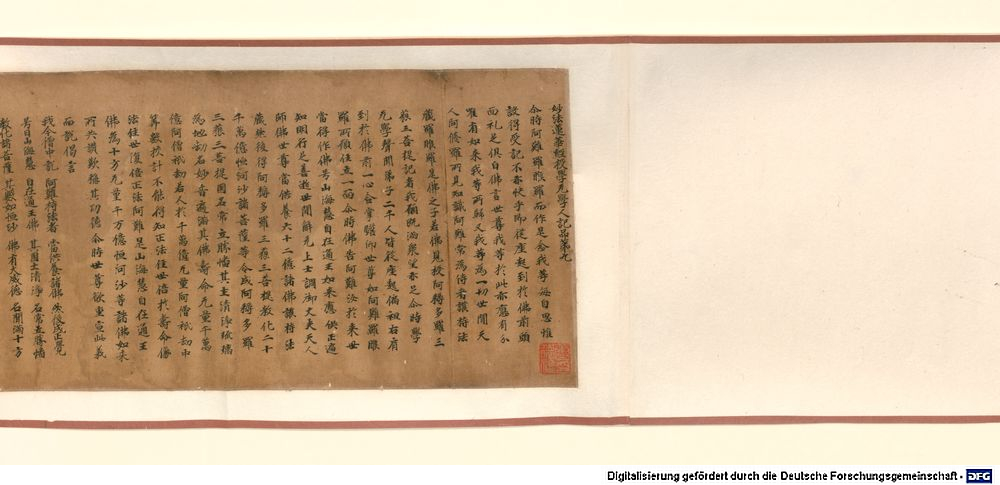 妙法蓮華經授學无學人記品第九
尒時阿難羅睺羅而作是念我等每自思惟
設得受記不亦快乎即從座起到於佛前頭
面礼足俱白佛言世尊我等於此亦應有分
唯有如來我等所歸又我等為一切世間天
人阿修羅所見知識阿難常為侍者護持法
藏羅睺羅是佛之子若佛見授阿耨多羅三
藐三菩提記者我願既滿衆望亦足尒時學
无學聲聞弟子二千人皆從座起偏袒右肩
到於佛前一心合掌瞻仰世尊如阿難羅睺
羅所願住立一面尒時佛告阿難汝於來世
當得作佛号山海慧自在通王如來應供正遍
知明行足善逝世間解无上士調御丈夫天人
師佛世尊當供養六十二億諸佛護持法
藏然後得阿耨多羅三藐三菩提教化二十
千萬億恒河沙諸菩薩等令成阿耨多羅
三藐三菩提國名常立勝幡其土清淨琉璃
為地劫名妙音遍滿其佛壽命无量千萬
億阿僧祇劫若人於千萬億无量阿僧祇劫中
筭數挍計不能得知正法住世倍於壽命像
法住世復倍正法阿難是山海慧自在通王
佛為十方无量千萬億恒河沙等諸佛如來
所共讚歎稱其功德尒時世尊欲重宣此義
而說偈言
我今僧中說 阿難持法者 當供養諸佛 然後成正覺
号曰山海慧 自在通王佛 其國土清淨 名常立勝幡
教化諸菩薩 其數如恒沙 佛有大威德 名聞滿十方
Digitalisierung gefördert durch die Deutsche Forschungsgemeinschaft - DFG